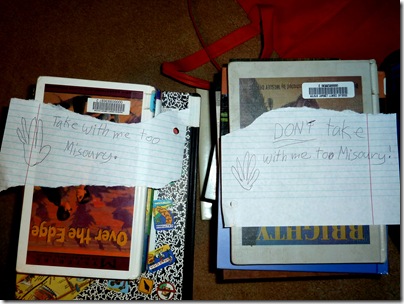 Take with me too
Misoury.
Over the Edge
DON'T take
with me too Misoury!
BRIGHTY